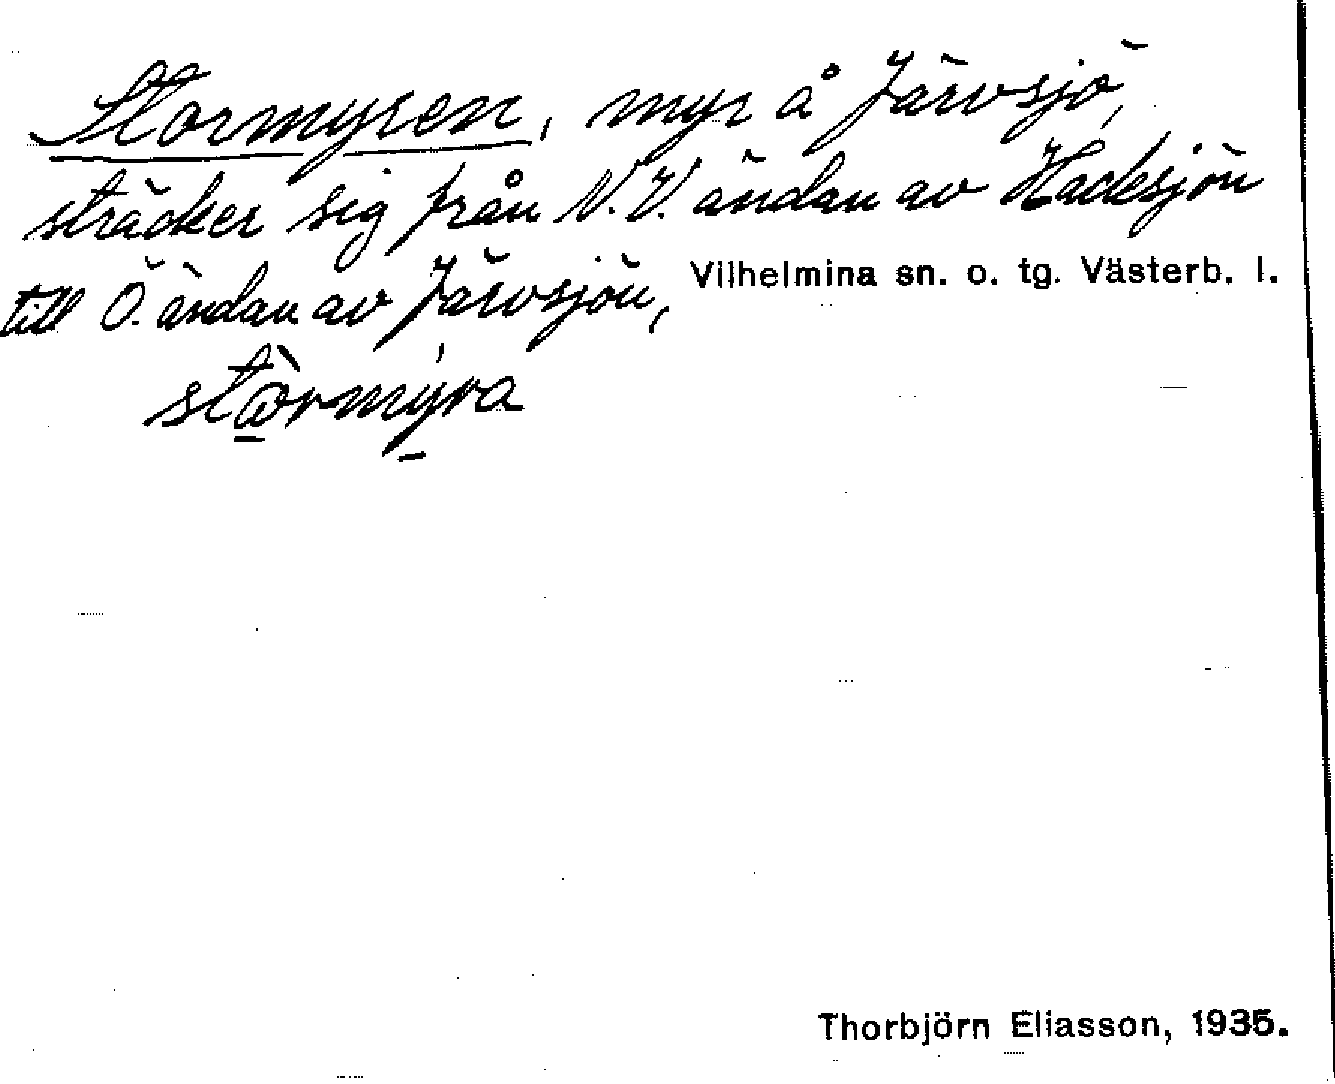 Stormyren, myr å Järvsjö,
sträcker sig från N.V. ändan av Hacksjön
till Ö. ändan av Järvsjön,
Vilhelmina sn. o. tg. Västerb. l.
stòrmýra
Thorbjörn Eliasson, 1935.